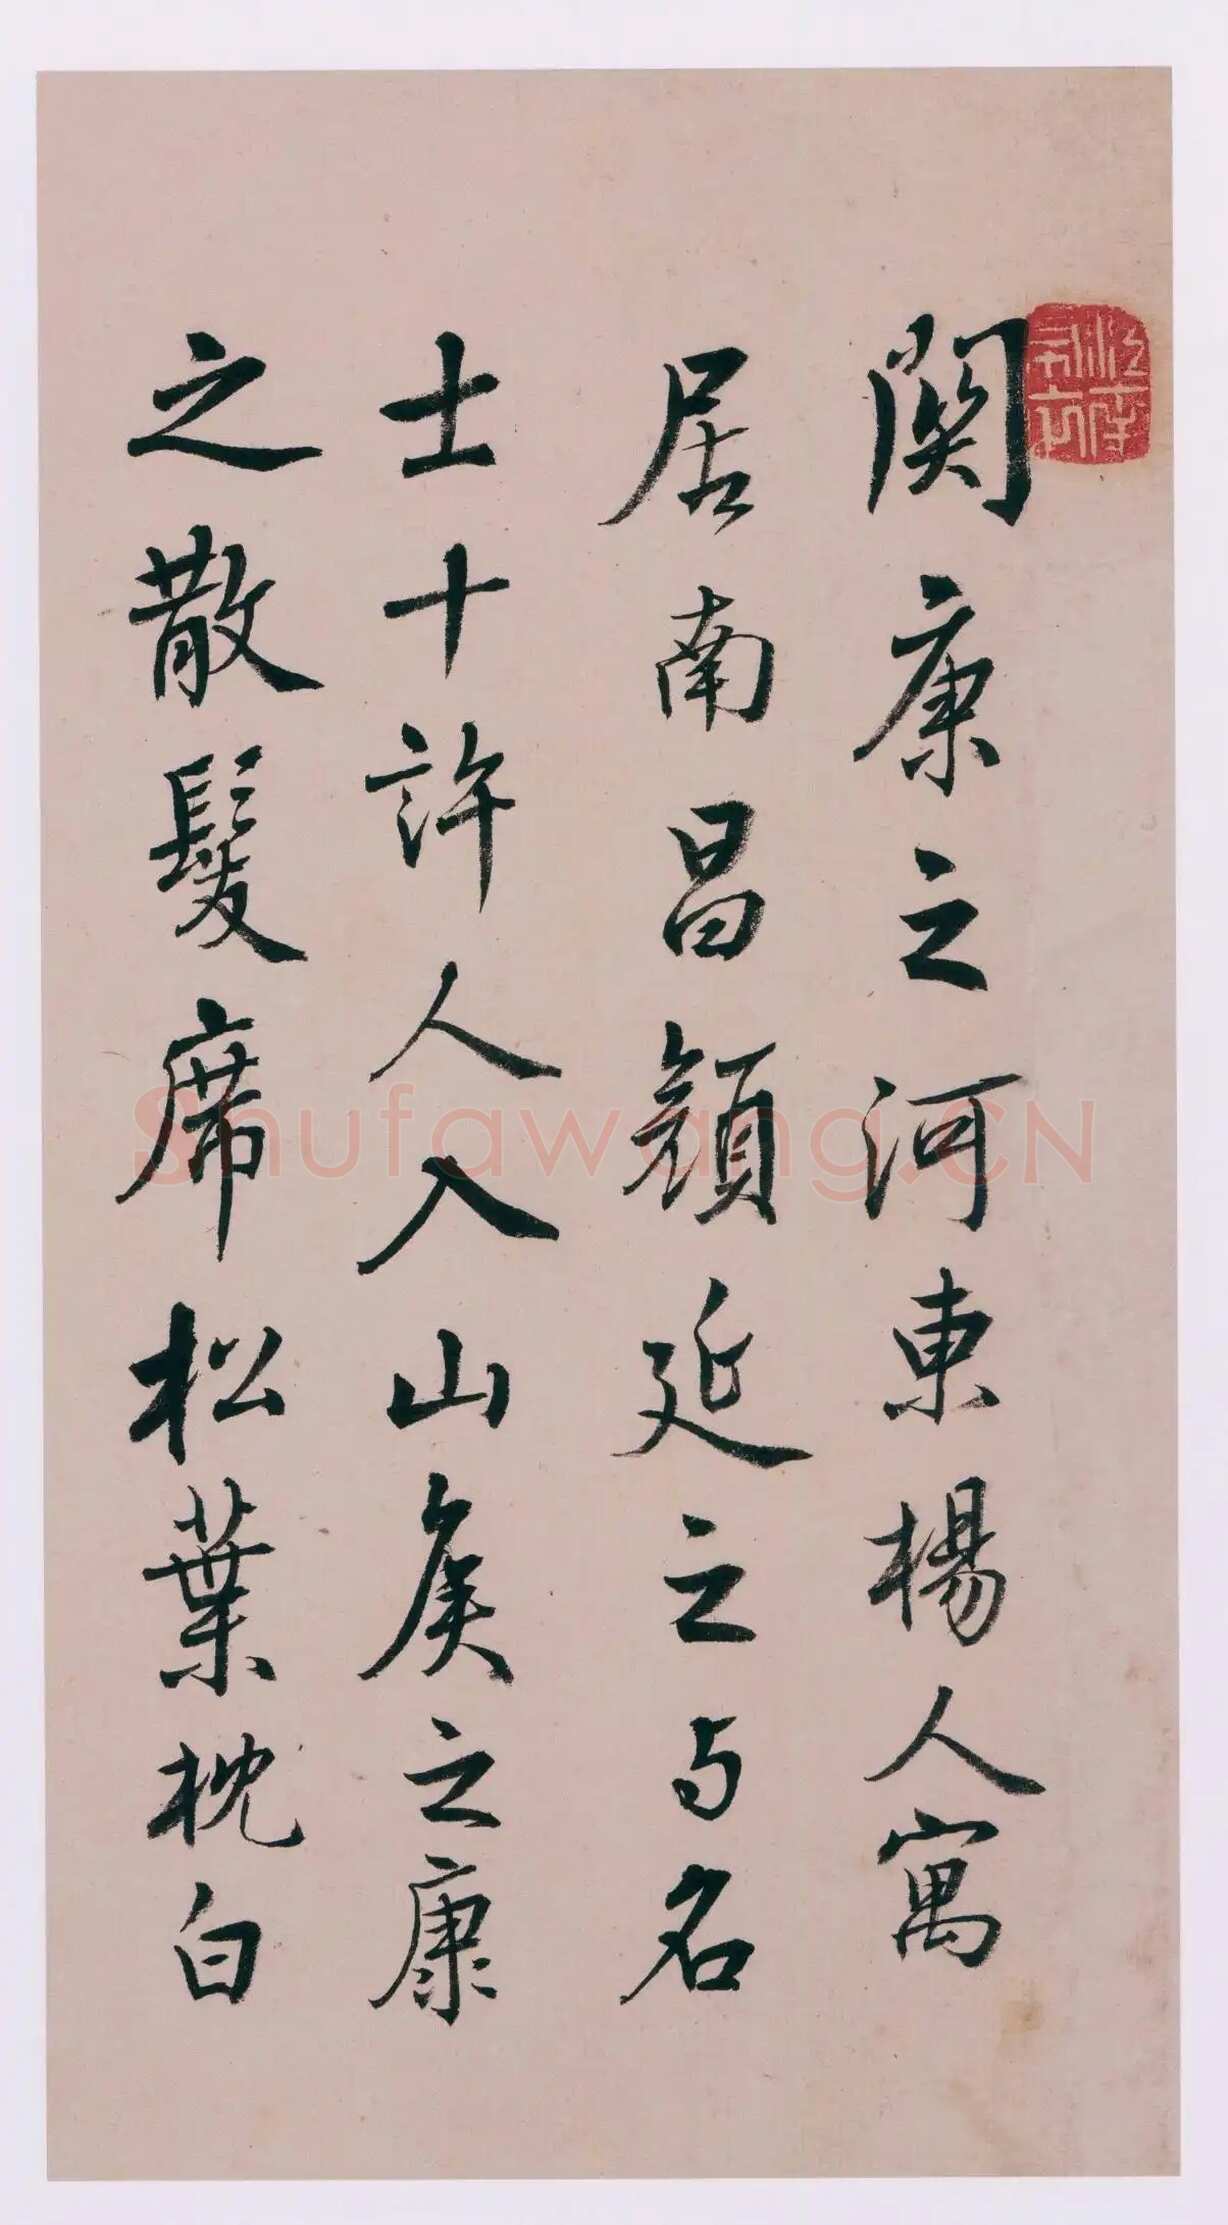 関康之河東楊人寓
居南昌顔延之与名
士十許人入山矦之康
之散髮席松葉枕白
Shufawang.CN